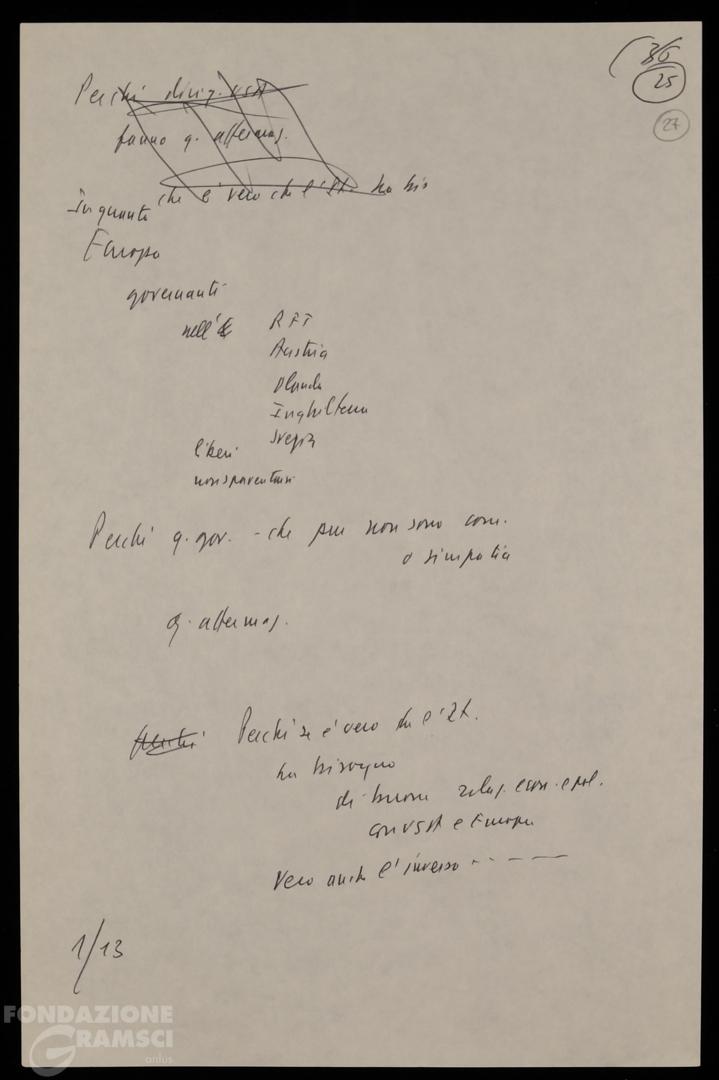 36
25
27
Perché dirig. USA
fanno q. affermaz.
che è vero che l'It. ha bis
In quanto
Europa
governanti
nell' RFT
Austria
Olanda
Inghilterra
Svezia
liberi
non spaventarsi
Perché q. gov. - che pur non sono com.
o simpatia
q. affermaz.
Perché se è vero che l'It.
ha bisogno
di buone relaz. econ. e pol.
con USA e Europa
Vero anche l'inverso -- - - —
1/13
FONDAZIONE
GRAMSCI
onlus